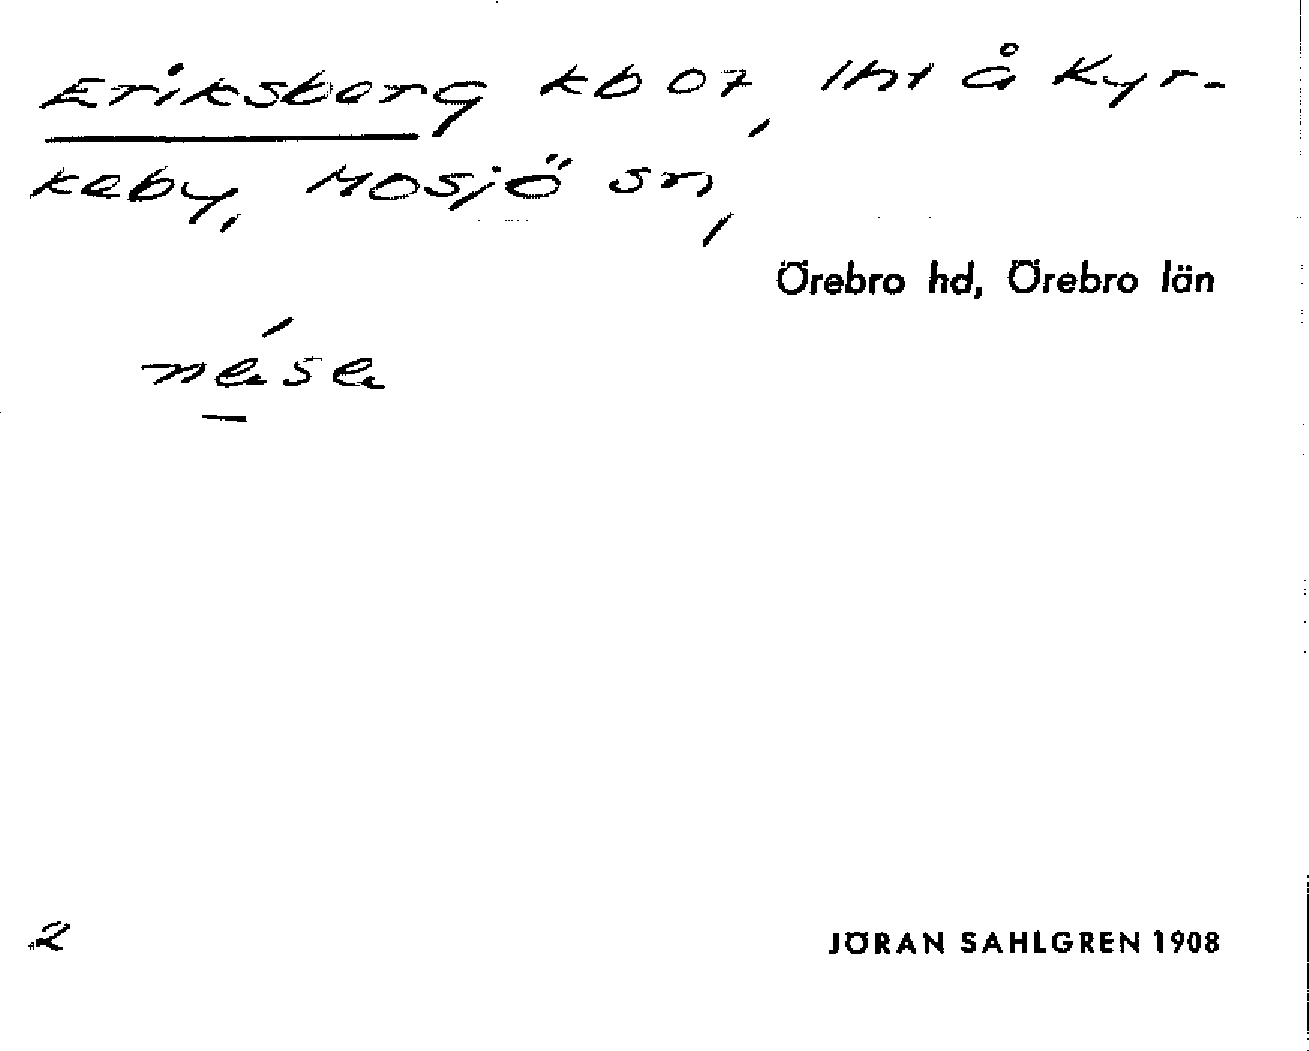 Eriksberg kbot, lht å Kyr-
keby, Mosjö sn,
Örebro hd, Örebro län
2
JÖRAN SAHLGREN 1908